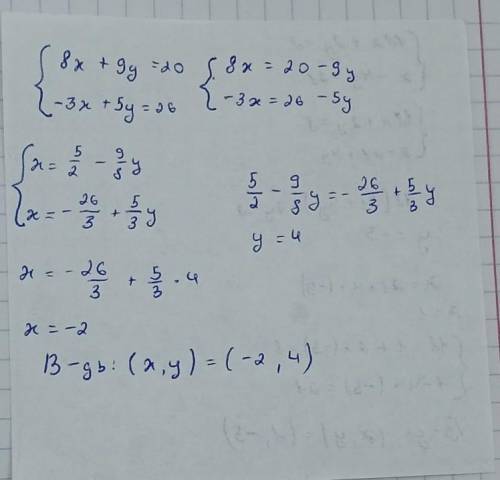 { 8x + 9y = 20 { 8x = 20 - 9y
{ -3x + 5y = 26 { -3x = 26 - 5y
{ x = 5/2 - 9/8 y
{ x = - 26/3 + 5/3 y
5/2 - 9/8 y = - 26/3 + 5/3 y
y = 4
x = - 26/3 + 5/3 · 4
x = -2
В-дь: (x, y) = (-2, 4)